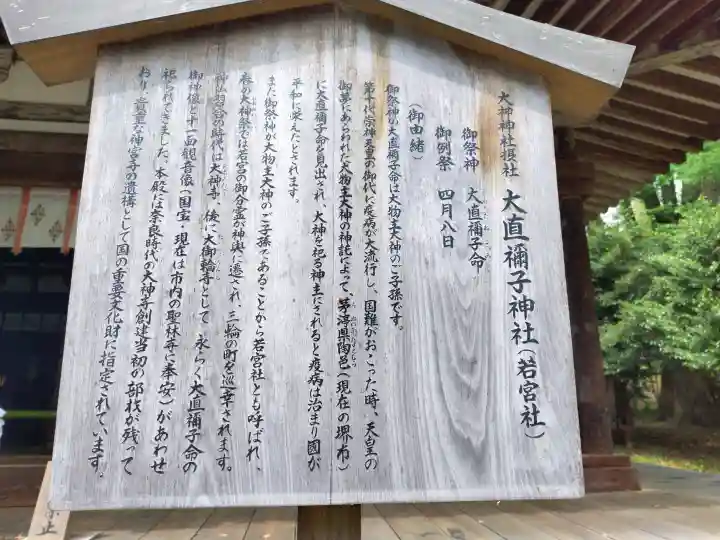 大神神社摂社 大直禰子神社(若宮社)
御祭神 大直禰子命
御例祭 四月八日
(御由緒)
御祭神の大直禰子命は大物主大神のご子孫です。
第十代崇神天皇の御代に疫病が大流行し、国難がおこった時、天皇の
御夢にあらわれた大物主大神の神託によって、茅渟県陶邑(現在の堺市)
に大直禰子命を見出され、大神を祀る神主にされると疫病は治まり国が
平和に栄えたとされます。
また御祭神が大物主大神のご子孫であることから若宮社とも呼ばれ、
春の大神祭では若宮の御分霊が神輿に遷され、三輪の町を巡幸されます。
神仏習合の時代は大神寺、後に大御輪寺として、永らく大直禰子命の
御神像と十一面観音像(国宝・現在は市内の聖林寺に奉安)があわせ
祀られてきました。本殿には奈良時代の大神寺創建当初の部材が残って
おり、貴重な神宮寺の遺構として国の重要文化財に指定されています。
止